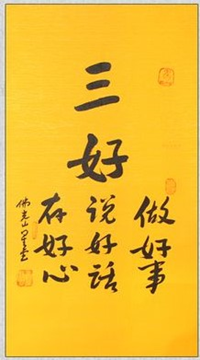 三好
做好事
说好话
存好心
佛光山星云